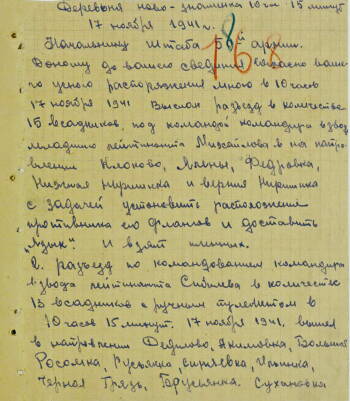 Деревня ново-знаменка 10 ч. 15 минут
17 ноября 1941 г.
Начальнику Штаба 58й армии.
168
Доношу до вашего сведения согласно ваше-
го устного распоряжения мною в 10 часов
17 ноября 1941 Выслан разъезд в количестве
15 всадников под командой командира взвод
младшего лейтенанта Михайлова в на-
правлении Клоково, Федровка,
Нижняя и верхняя
с задачей установить расположение
противника его флангов и доставить
„Язык“. И взят пленник.
2. разъезд по командованием командира
взвода лейтенанта в количестве
13 всадников с ручным пулеметом в
10 часов 15 минут. 17 ноября 1941. вышел
в направлении Федулово, Акиловка, Большая
Росомка, Русявка, Ильинка,
Черная Грязь, Сухановка